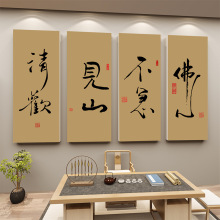 清歡
見山
不急
佛心